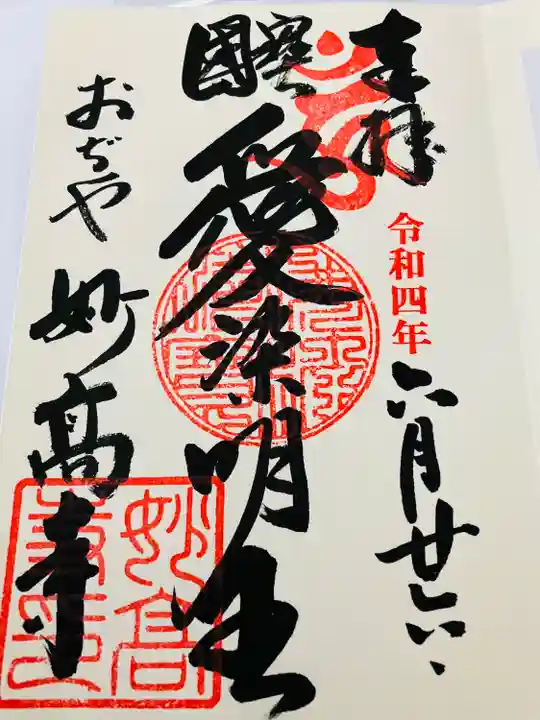 奉拝
令和四年六月廿六、
國寶 愛染明王
おぢや 妙高寺
妙高